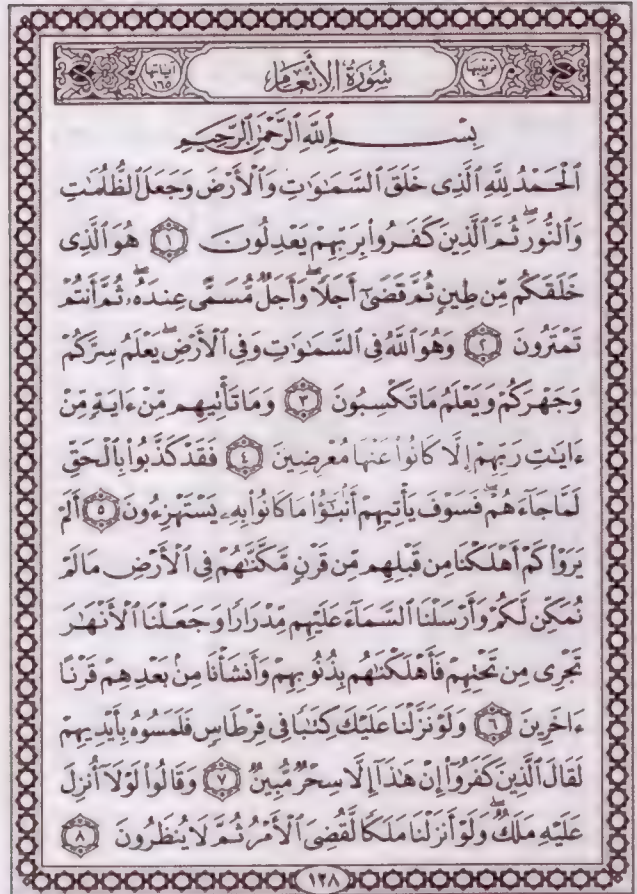 ترتيبها ٦ سُورَةُ الأَنْعَامِ آياتها ١٦٥
بِسْمِ ٱللَّهِ ٱلرَّحْمَٰنِ ٱلرَّحِيمِ
ٱلْحَمْدُ لِلَّهِ ٱلَّذِى خَلَقَ ٱلسَّمَٰوَٰتِ وَٱلْأَرْضَ وَجَعَلَ ٱلظُّلُمَٰتِ
وَٱلنُّورَ ۖ ثُمَّ ٱلَّذِينَ كَفَرُوا۟ بِرَبِّهِمْ يَعْدِلُونَ ١ هُوَ ٱلَّذِى
خَلَقَكُم مِّن طِينٍ ثُمَّ قَضَىٰٓ أَجَلًا ۖ وَأَجَلٌ مُّسَمًّى عِندَهُۥ ۖ ثُمَّ أَنتُمْ
تَمْتَرُونَ ٢ وَهُوَ ٱللَّهُ فِى ٱلسَّمَٰوَٰتِ وَفِى ٱلْأَرْضِ ۖ يَعْلَمُ سِرَّكُمْ
وَجَهْرَكُمْ وَيَعْلَمُ مَا تَكْسِبُونَ ٣ وَمَا تَأْتِيهِم مِّنْ ءَايَةٍ مِّنْ
ءَايَٰتِ رَبِّهِمْ إِلَّا كَانُوا۟ عَنْهَا مُعْرِضِينَ ٤ فَقَدْ كَذَّبُوا۟ بِٱلْحَقِّ
لَمَّا جَآءَهُمْ ۖ فَسَوْفَ يَأْتِيهِمْ أَنۢبَٰٓؤُا۟ مَا كَانُوا۟ بِهِۦ يَسْتَهْزِءُونَ ٥ أَلَمْ
يَرَوْا۟ كَمْ أَهْلَكْنَا مِن قَبْلِهِم مِّن قَرْنٍ مَّكَّنَّٰهُمْ فِى ٱلْأَرْضِ مَا لَمْ
نُمَكِّن لَّكُمْ وَأَرْسَلْنَا ٱلسَّمَآءَ عَلَيْهِم مِّدْرَارًا وَجَعَلْنَا ٱلْأَنْهَٰرَ
تَجْرِى مِن تَحْتِهِمْ فَأَهْلَكْنَٰهُم بِذُنُوبِهِمْ وَأَنشَأْنَا مِنۢ بَعْدِهِمْ قَرْنًا
ءَاخَرِينَ ٦ وَلَوْ نَزَّلْنَا عَلَيْكَ كِتَٰبًا فِى قِرْطَاسٍ فَلَمَسُوهُ بِأَيْدِيهِمْ
لَقَالَ ٱلَّذِينَ كَفَرُوٓا۟ إِنْ هَٰذَآ إِلَّا سِحْرٌ مُّبِينٌ ٧ وَقَالُوا۟ لَوْلَآ أُنزِلَ
عَلَيْهِ مَلَكٌ ۖ وَلَوْ أَنزَلْنَا مَلَكًا لَّقُضِىَ ٱلْأَمْرُ ثُمَّ لَا يُنظَرُونَ ٨
١٢٨